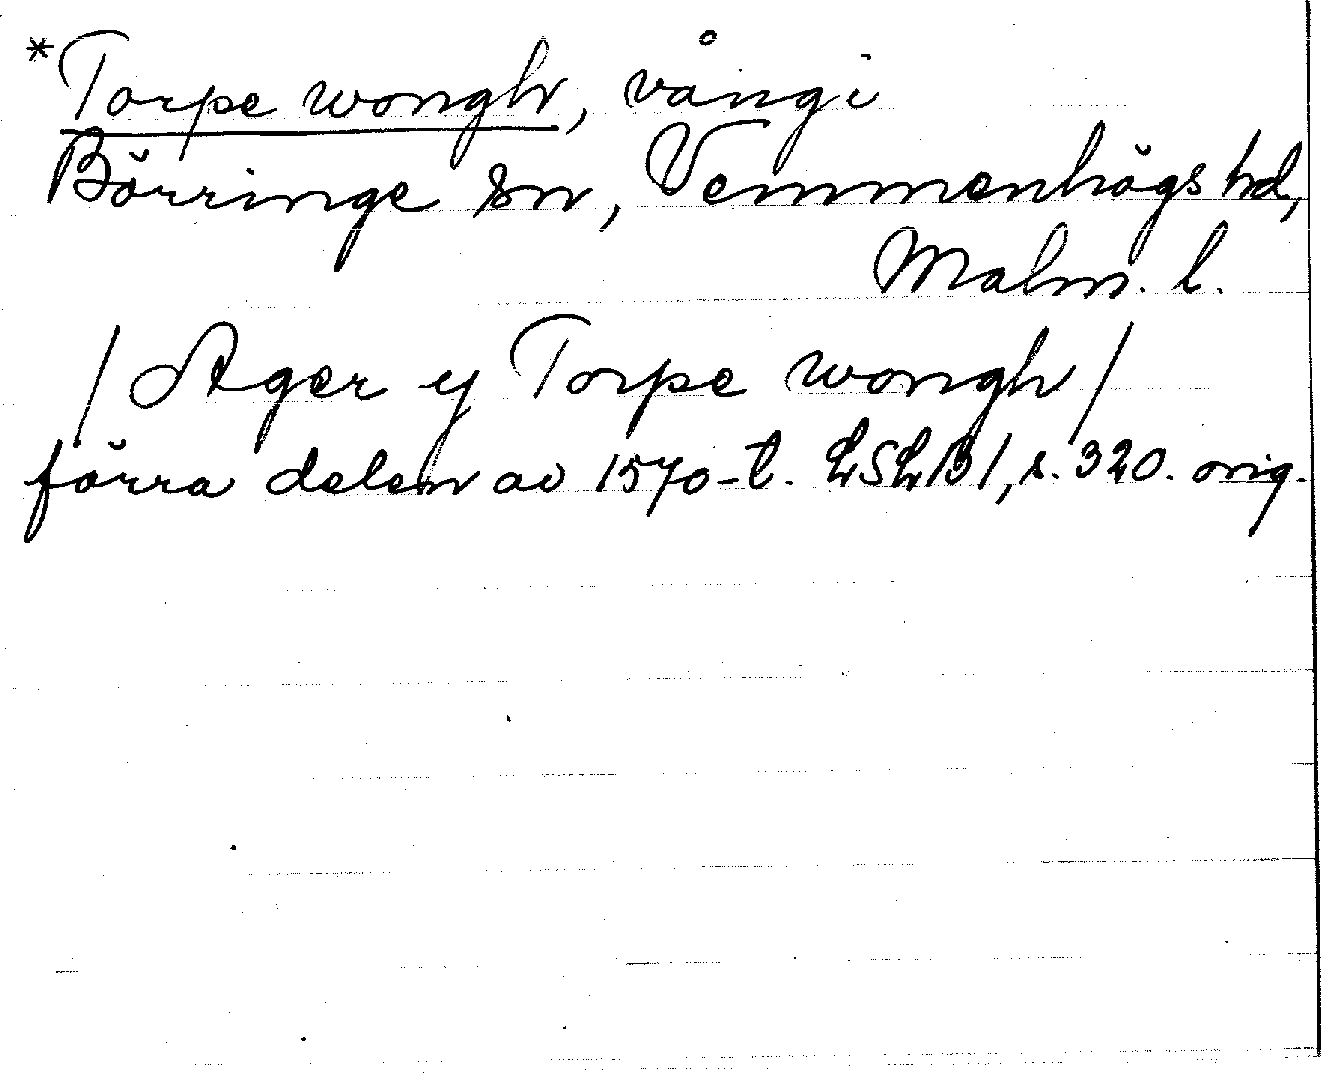 *Torpe wongh, vång i
Börringe sn, Vemmenhögs hd,
Malm. l.
/Ager y Torpe wongh/
förra delen av 1570-t. LSLB 1, s. 320. orig.